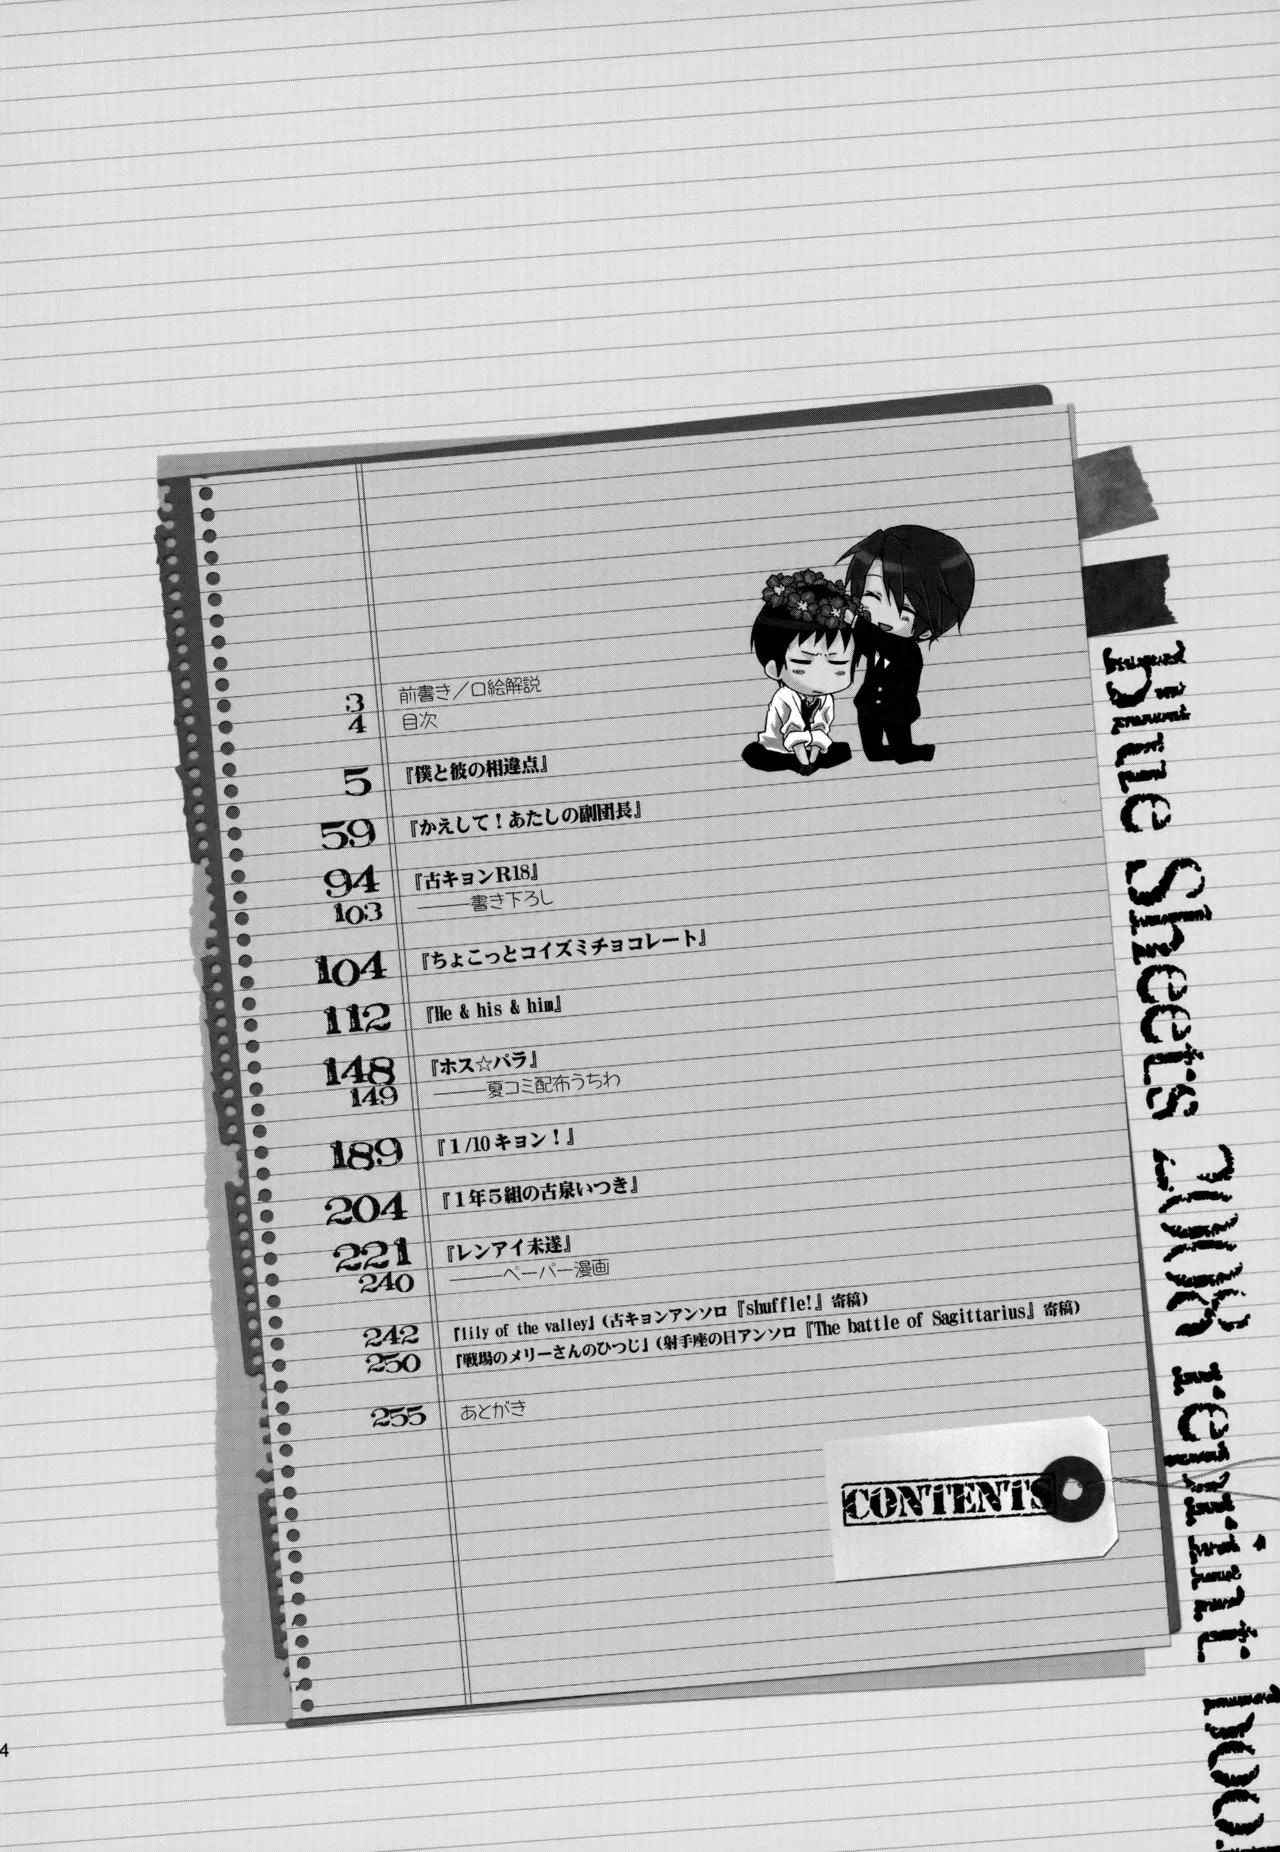 3 前書き／口絵解説
4 目次
5 『僕と彼の相違点』
59 『かえして！あたしの副団長』
94 『古キョンR18』
103 ―――書き下ろし
104 『ちょこっとコイズミチョコレート』
112 『He & his & him』
148 『ホス☆パラ』
149 ―――夏コミ配布うちわ
189 『１/10キョン！』
204 『１年５組の古泉いつき』
221 『レンアイ未遂』
240 ―――ペーパー漫画
242 『lily of the valley』(古キョンアンソロ『shuffle!』寄稿)
250 『戦場のメリーさんのひつじ』(射手座の日アンソロ『The battle of Sagittarius』寄稿)
255 あとがき
CONTENTS
Blue Sheets 2008 reprint boo
4